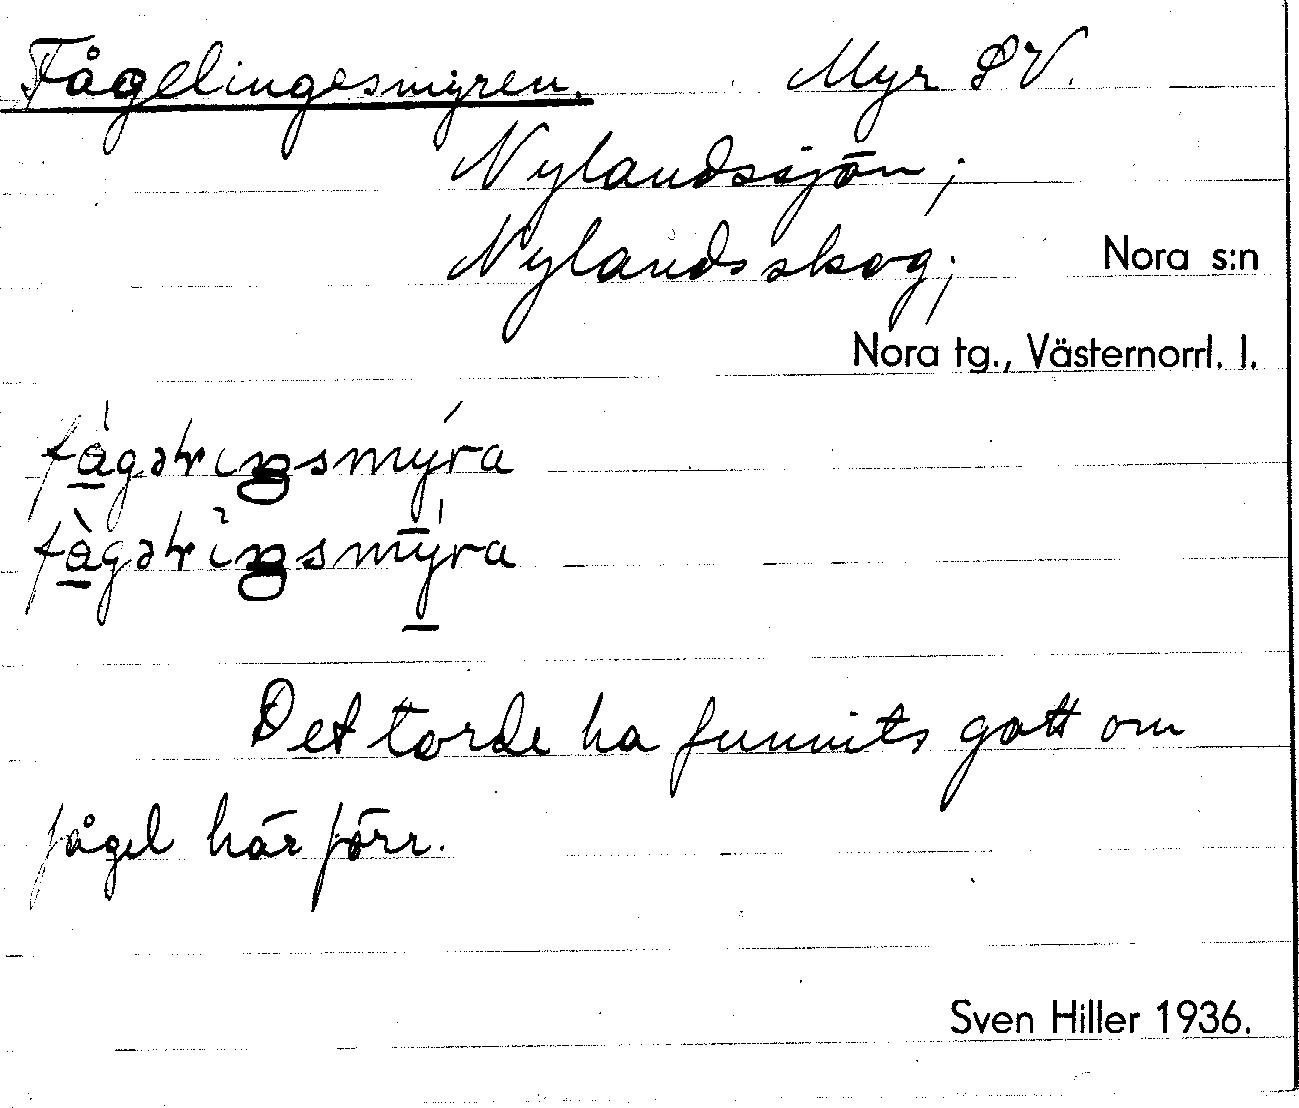 Fågelingesmyren. Myr SV.
Nylandssjön;
Nylandsskog; Nora s:n
Nora tg., Västernorrl. l.
Det torde ha funnits gott om
fågel här förr.
Sven Hiller 1936.